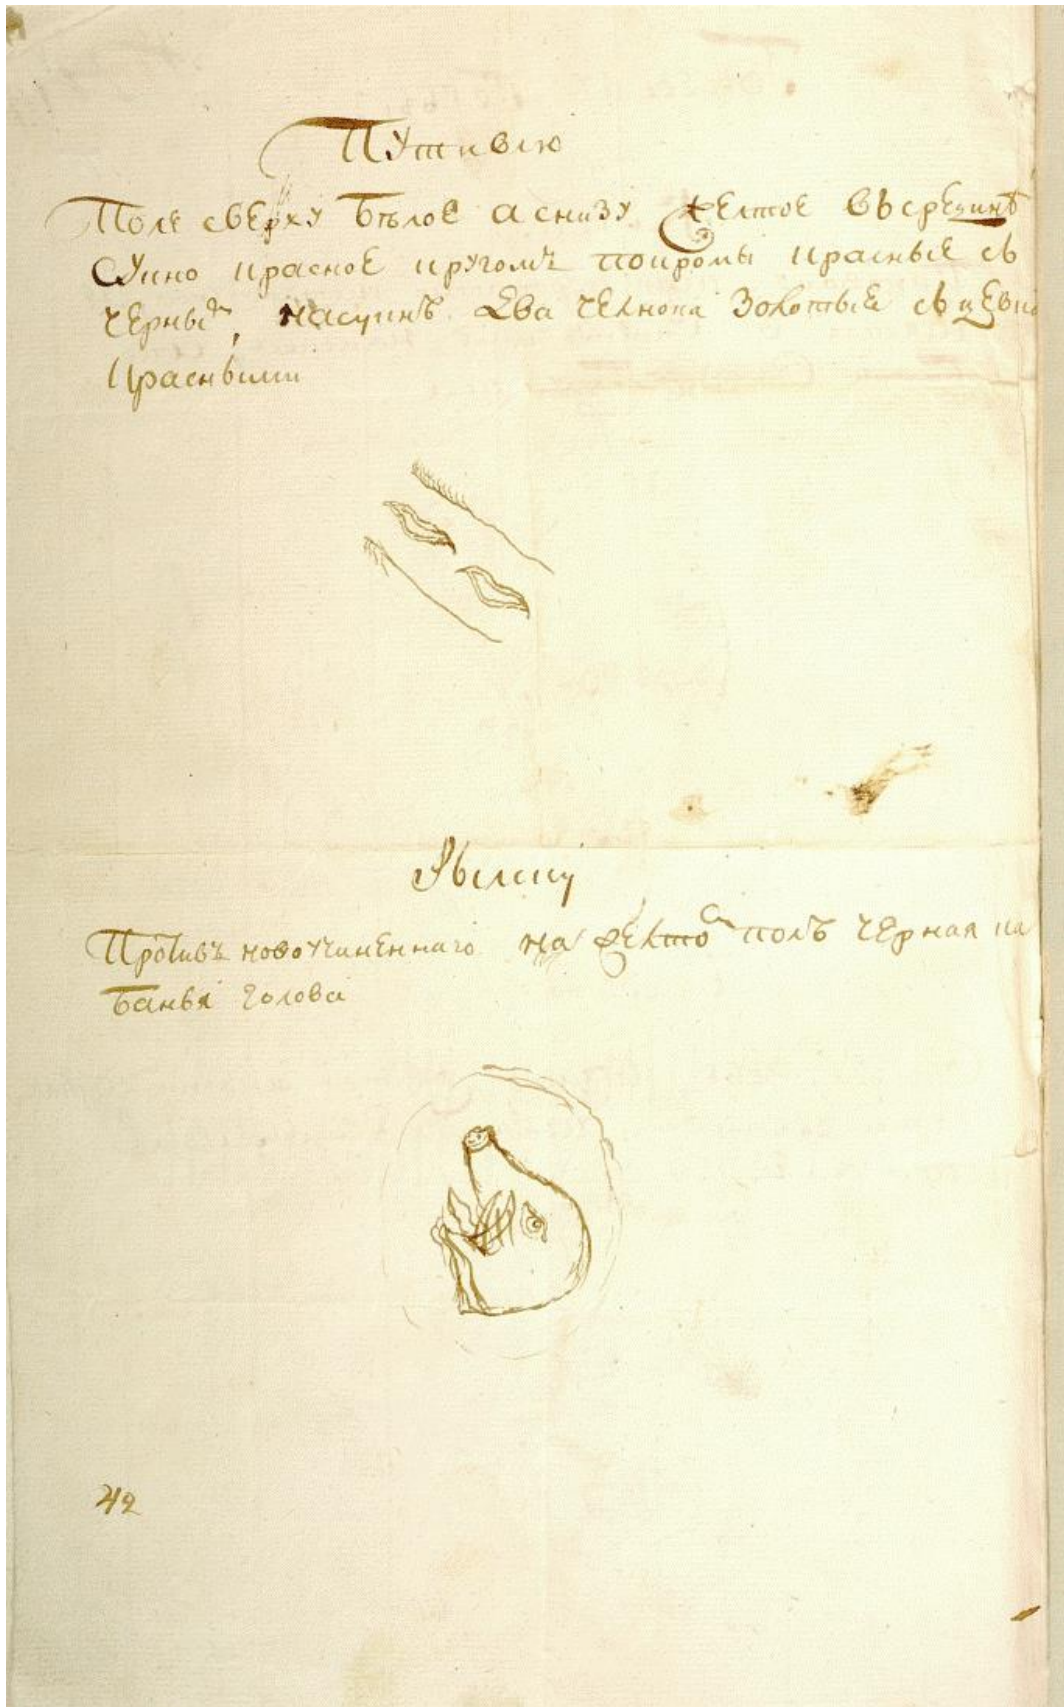 Путивлю
Поле сверху белое а снизу желтое въсрединѣ
Сукно красное кругомъ покромы красные съ
черным, насукнѣ два челнока золотые съ цевка
красными
Рылску
Противъ новоучиненнаго на желтом полѣ черная ка
банья голова
42